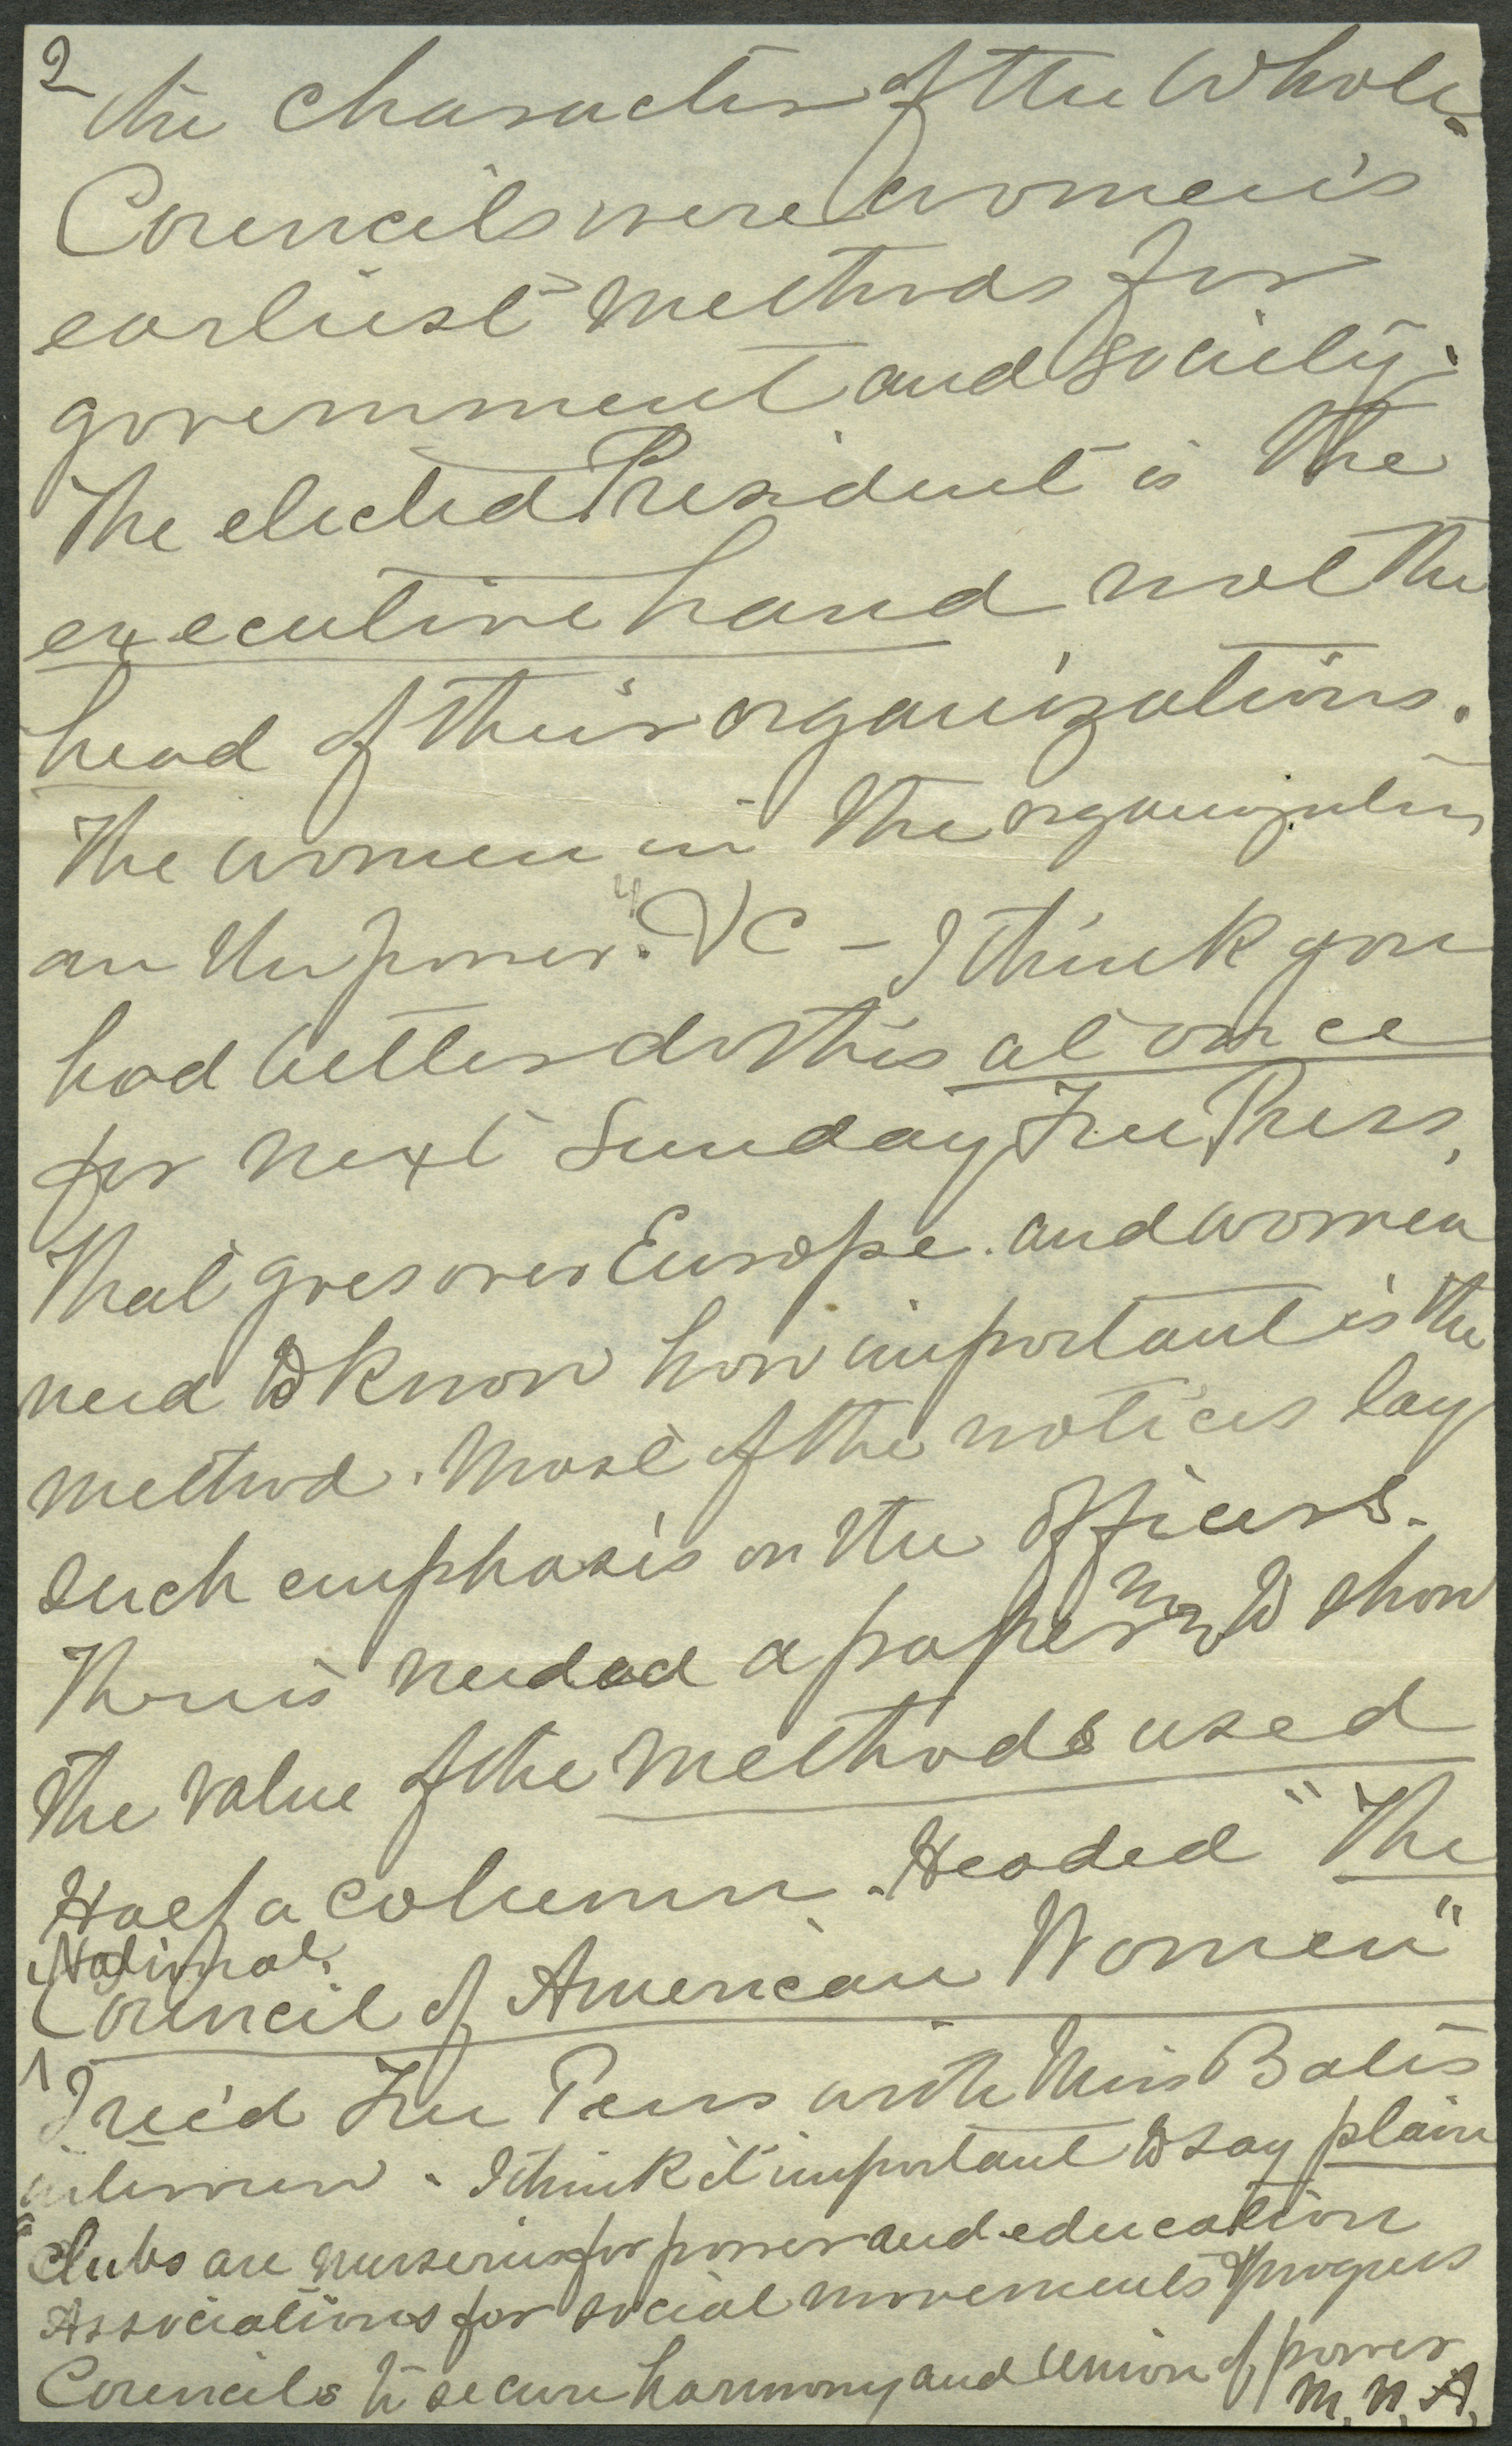 2
the character of the whole.
Councils were women's
earliest methods for
government and society.
The elected President is the
executive hand not the
head of their organizations.
The women in the organization
are the power." VC - I think you
had better do this at once
for next Sunday Free Press,
That goes over Europe. and women
need to know how important is the
method. Most of the notices lay
such emphasis on the officers.
There is needed a paper now to show
the value of the methods used
Half a column. Headed "The
National
Council of American Women"
I rec'd Free Press with Miss Bates
interview. I think it important to say plain
"Clubs are nurseries for power and education
Associations for social movements & progress
Councils to secure harmony and union of power
M. N. A.